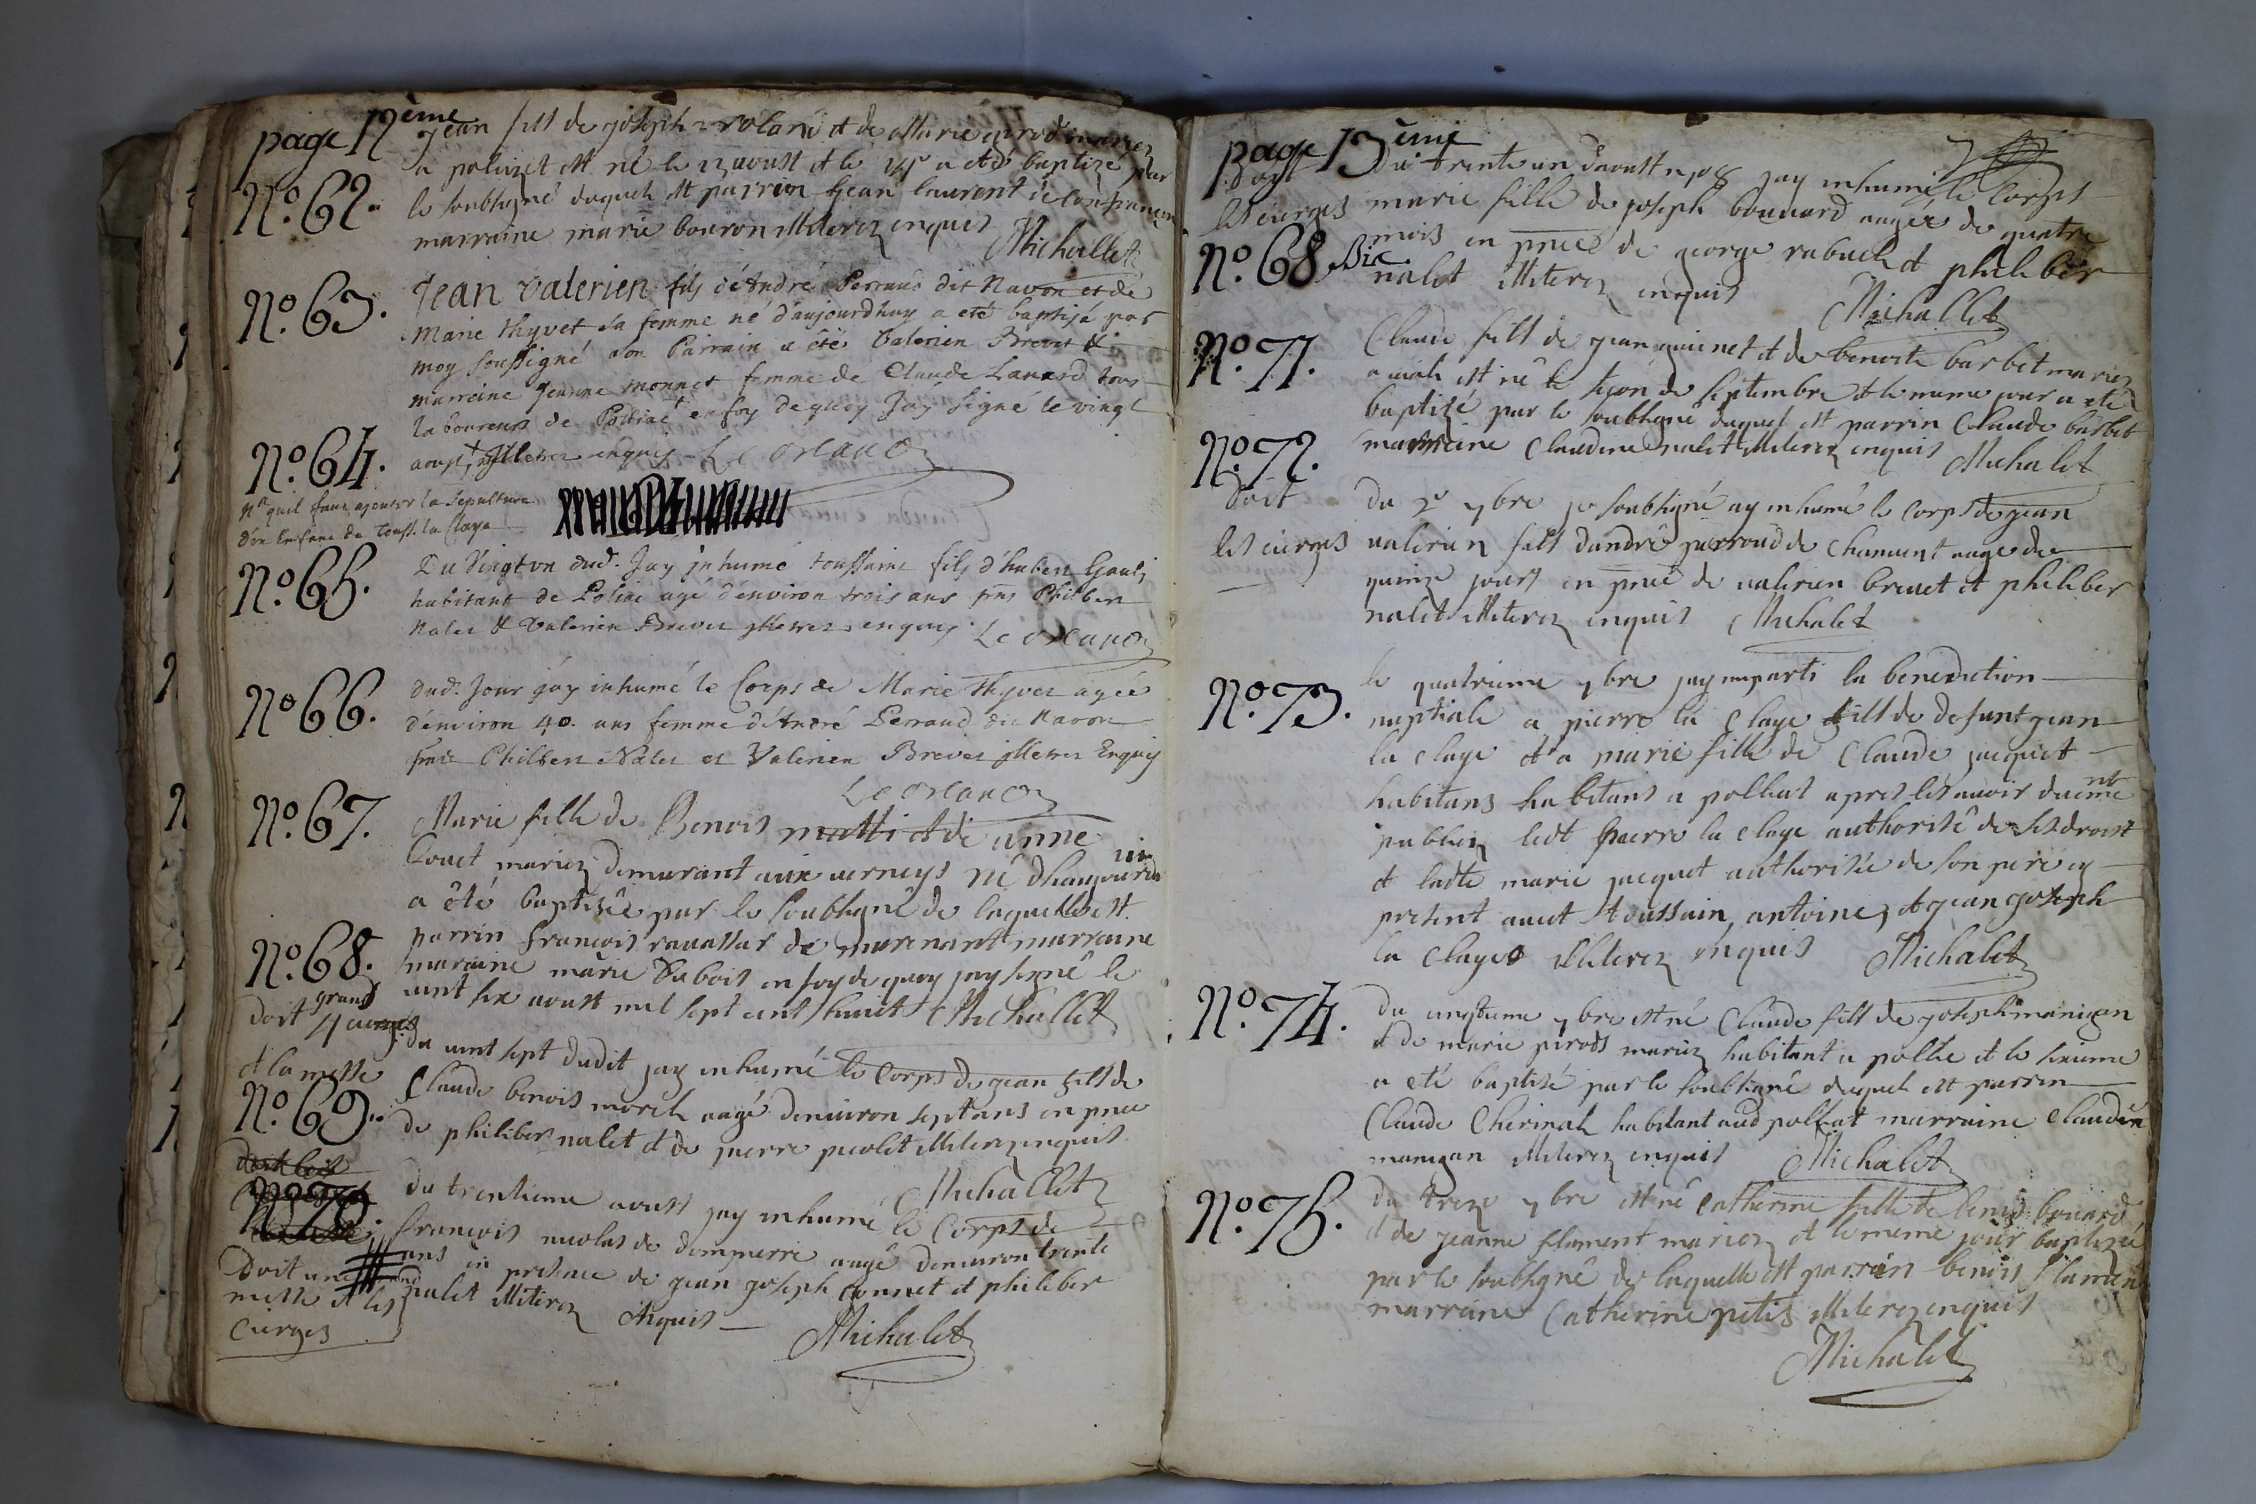 page 12ème
Jean fils de joseph roland et de Marie girod mariez
a poliazet est né le 12 aoust et le 14e a été baptizé par
No. 62.
le soubsigné duquel est parrin Jean laurent de
marraine marie bouron illiterez enquis Michallet
No. 63.
Jean Valerien fils d'André Perraud dit Navon et de
Marie thyvet sa femme né d'aujourdhuy a eté baptisé par
moy soussigné son Parrain a été Valerien Brevet &
marreine Jeanne Monnet femme de Claude Lanard tous
laboureurs de Polliat en foy dequoy Jay signé le vingt
No. 64.
aoust, jlleterez enquis Le Orlanon
Na. quil faut ajouter la sepulture
d'un Enfant de Touss. la Claye
No. 65.
Du vingt un dud. Jay jnhumé toussaint fils d'huben
habitant de Poliac agé d'environ trois ans pnts Philben
Nalet & Valerien Brevet jlleterez enquis Le Orlanon
No 66.
dud. Jour jay inhumé le Corps de Marie thyvet agée
d'environ 40. ans femme d'André Perraud dit Navon
pnts Philben Nalet et Valerien Brevet jlleterez Enquis
Le Orlanon
No. 67.
Marie fille de Benois matti et de anne
Couet mariez demurant aux verneys né dhauyourdhui
a été baptisée par le soubsigné de laquelle est
No. 68.
parrin francois ravassar de murinant marraine
maraine marie Dubois en foy de quoy jay signé le
vint six aoust mil sept cent huict Michallet
Doit 4 grands cierges
du vint sept dudit jay inhumé le corps de jean fils de
et la messe
No. 69.
Claude benois morel aagé denviron sept ans en pnce
de philiber nalet et de pierre piolet illiterez enquis
Michallet
No 70.
du trentieme aoust jay inhumé le Corps de
francois nicolas de dompierre aagé denviron trente
Doit une grand
ans in presence de jean joseph connet et philiber
messe et les
nalet illiterez enquis Michalet
Cierges
page 13ème
Doit
du trente un daoust 1708 jay inhumé le Corps
les cierges
marie fille de joseph bouuard aagée de quatre
No. 68 Bis.
mois en pnce de george rabuel et philiber
nalet illiterez enquis Michallet
No. 71.
Claude fils de jean guinet et de benoite barbet mariez
a uial est né le segon de septembre et le mume jour a eté
baptizé par le soubsigné duquel est parrin Claude barbet
No. 72.
marreine Claudine nalet illiterez enquis Michalet
Doit
du 2e 7bre je soubsigné ay inhumé le corps de jean
les cierges
ualerien fils dandré perroud de chamant aagé de
quinze jours en pnce de ualerien breuet et philiber
nalet illiterez enquis Michalet
No. 73.
le quatrieme 7bre jay imparti la benediction
nuptiale a pierre la claye fils de defunt jean
la claye et a marie fille de Claude jacquet
habitans habitans a polliat apres les auoir duemt
publiez ledt pierre la claye authorisé de ses droist
et ladte marie jacquet authorisée de son pere cy
present auec toussain, antoine, et jean joseph
la claye illiterez enquis Michalet
No. 74.
du cinqtieme 7bre est né Claude fils de joseph manigan
et de marie perods mariez habitant a polliat et le sixieme
a eté baptisé par le soubsigné duquel est parrin
Claude Cherinal habitant aud polliat marraine Claudine
manigan illiterez enquis Michalet
No. 75.
du treze 7bre est né Catherine fille de benois bouard
et de jeanne flament mariez et le meme jour baptizée
par le soubsigné de laquelle est parrin benois flament
marraine Catherine petit illiterez enquis
Michalet